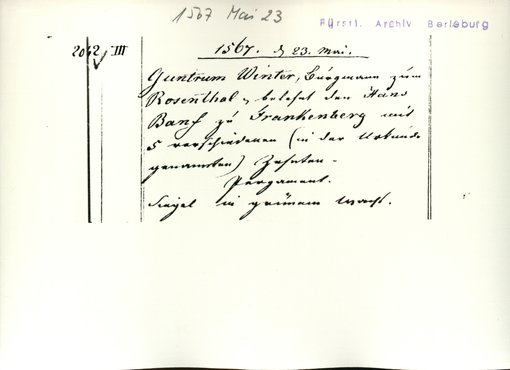 1567 Mai 23
Fürstl. Archiv Berleburg
2042 III
1567. d 23. Mai.
Guntram Winter, Burgmann zum
Rosenthal, belehnt den Hans
zu Frankenberg mit
5 verschiedenen (in der Urkunde
genannten) Zehnten.
Pergament.
Siegel in grünem Wachs.